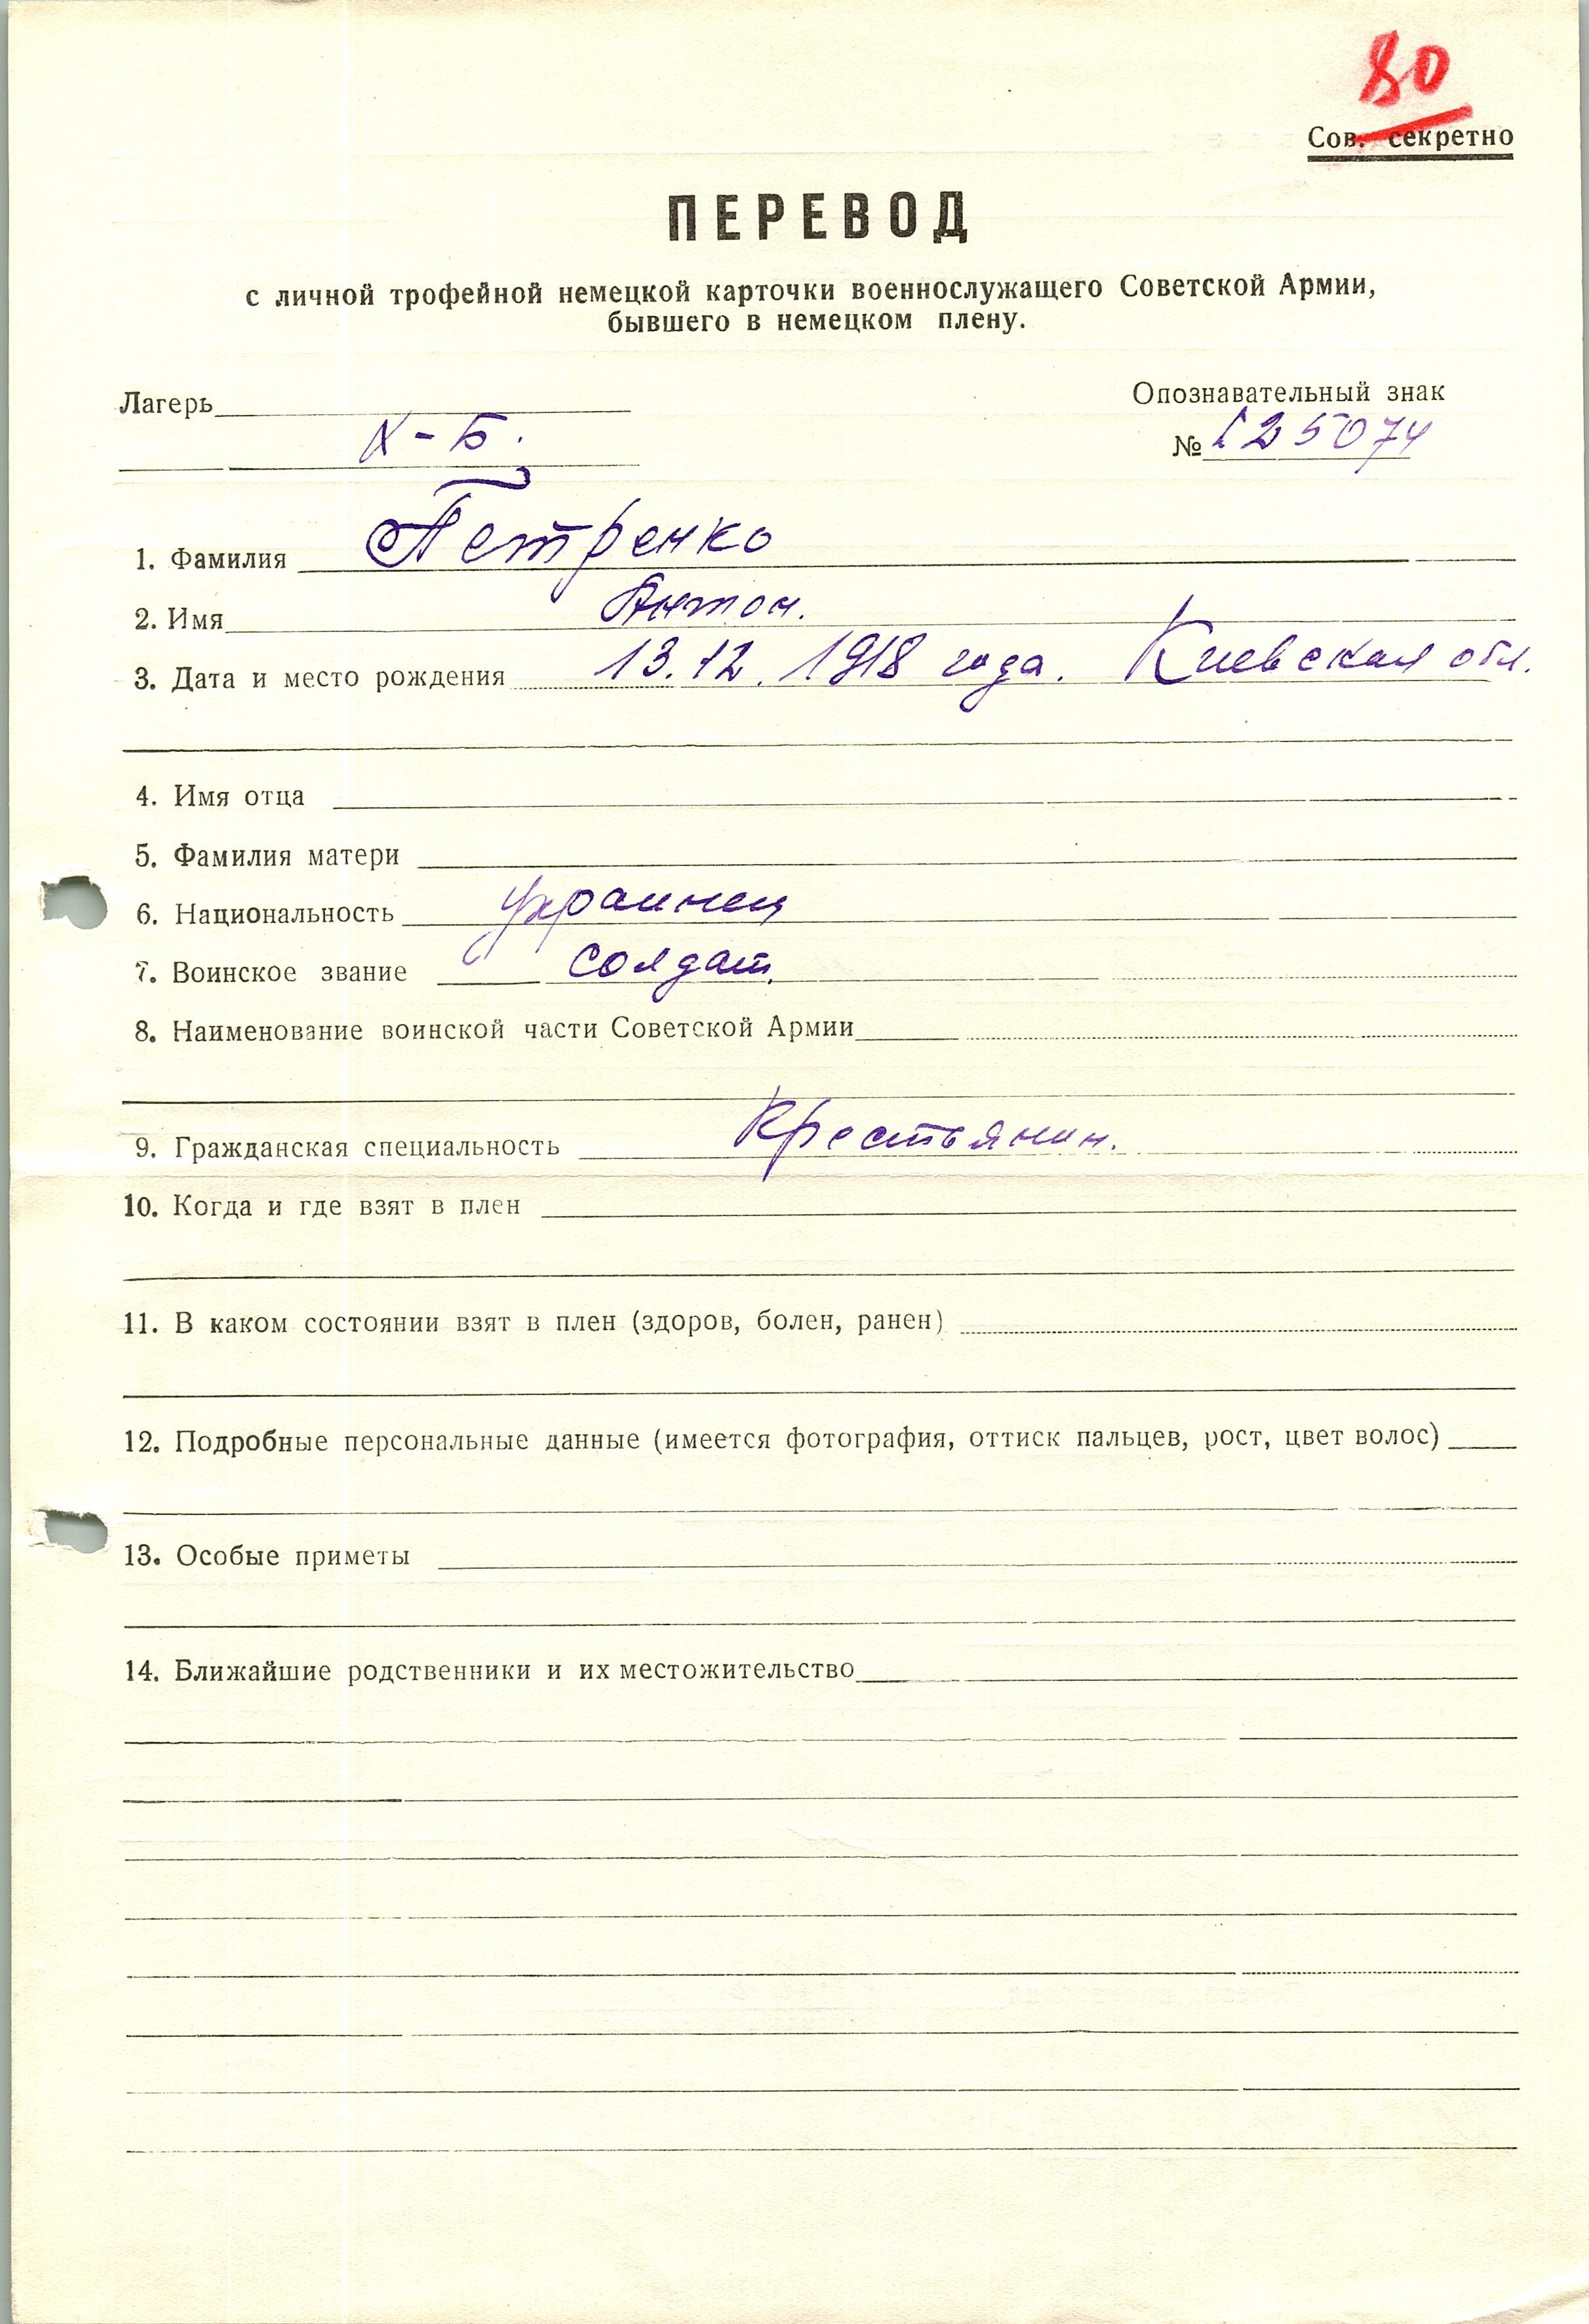 80
Сов. секретно
ПЕРЕВОД
с личной трофейной немецкой карточки военнослужащего Советской Армии,
бывшего в немецком плену.
Лагерь
Опознавательный знак
X-Б.
№ 125074
1. Фамилия Петренко
2. Имя Антон.
3. Дата и место рождения 13.12.1918 года. Киевская обл.
4. Имя отца
5. Фамилия матери
6. Национальность украинец
7. Воинское звание солдат.
8. Наименование воинской части Советской Армии
9. Гражданская специальность Крестьянин.
10. Когда и где взят в плен
11. В каком состоянии взят в плен (здоров, болен, ранен)
12. Подробные персональные данные (имеется фотография, оттиск пальцев, рост, цвет волос)
13. Особые приметы
14. Ближайшие родственники и их местожительство